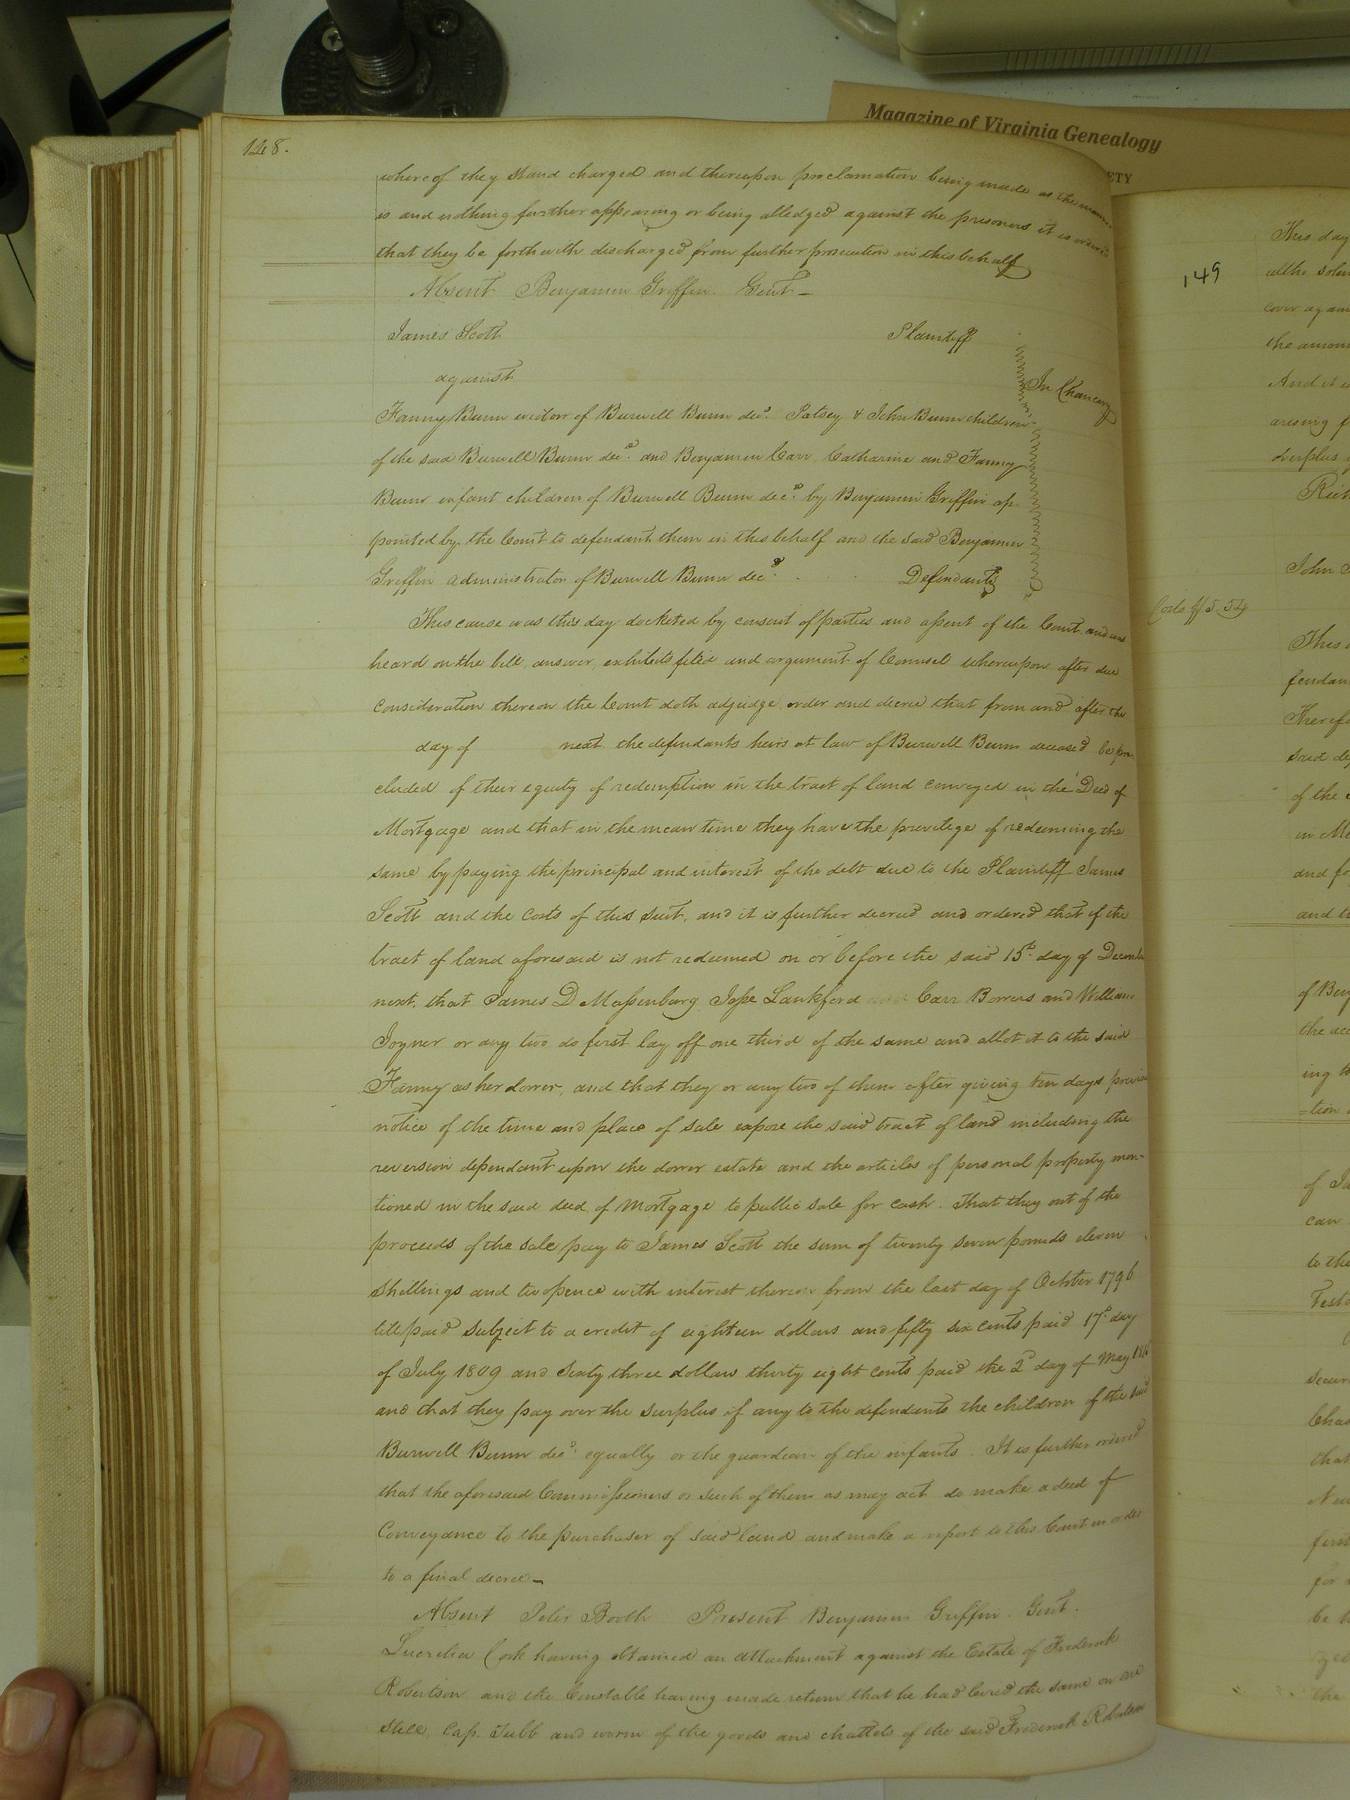 Magazine of Virginia Genealogy
ETY
148.
whereof they stand charged and thereupon proclamation being made as the manner
is and nothing further appearing or being alledged against the prisoners it is ordered
that they be forthwith discharged from further prosecution in this behalf
Absent Benjamin Griffin Gent
James Scott Plaintiff
against
In Chancery
Fanny Bunn widow of Burwell Bunn decd. Patsey & John Bunn children
of the said Burwell Bunn decd. and Benjamin Carr, Catharine and Fanny
Bunn infant children of Burwell Bunn decd. by Benjamin Griffin ap
pointed by the Court to defendant them in this behalf and the said Benjamin
Griffin administrator of Burwell Bunn decd. Defendants
This cause was this day docketed by consent of parties and assent of the Court and was
heard on the bill, answer, exhibits filed and argument of Counsel whereupon after due
consideration thereon the Court doth adjudge order and decree that from and after the
day of next the defendants heirs at law of Burwell Bunn deceased be pre
cluded of their equity of redemption in the tract of land conveyed in the Deed of
Mortgage and that in the mean time they have the privilege of redeeming the
same by paying the principal and interest of the debt due to the Plaintiff James
Scott and the costs of this suit, and it is further decreed and ordered that if the
tract of land aforesaid is not redeemed on or before the said 15th. day of December
next, that James D Massenburg Jesse Lankford Carr Bowers and William
Joyner or any two do first lay off one third of the same and allot it to the said
Fanny as her dower, and that they or any two of them after giving ten days previous
notice of the time and place of sale expose the said tract of land including the
reversion dependant upon the dower estate and the articles of personal property men-
tioned in the said deed of Mortgage to public sale for cash. That they out of the
proceeds of the sale pay to James Scott the sum of twenty seven pounds eleven
shillings and twopence with interest thereon from the last day of October 1796
till paid subject to a credit of eighteen dollars and fifty six cents paid 17th day
of July 1809 and Sixty three dollars thirty eight cents paid the 2d day of May
and that they pay over the surplus if any to the defendents the children of the said
Burwell Bunn decd. equally or the guardian of the infants. It is further ordered
that the aforesaid Commissioners or such of them as may act do make a deed of
Conveyance to the purchaser of said land and make a report to this Court in order
to a final decree
Absent Peter Booth Present Benjamin Griffin Gent.
Lucretia Cork having obtained an attachment against the Estate of Frederick
Robertson and the Constable having made return that he had levied the same on one
Still, Cap, Tubb and worm of the goods and chattels of the said Frederick Robertson
149
This day
cover again
the amoun
And it
arising f
surplus
John
Costs $5.54
This
fendan
Therefo
said de
of the
in M
and fo
and
of Ben
the acc
ing
=tion
of Ja
can
to the
Testa
secur
Chas
that
New
for
be
the